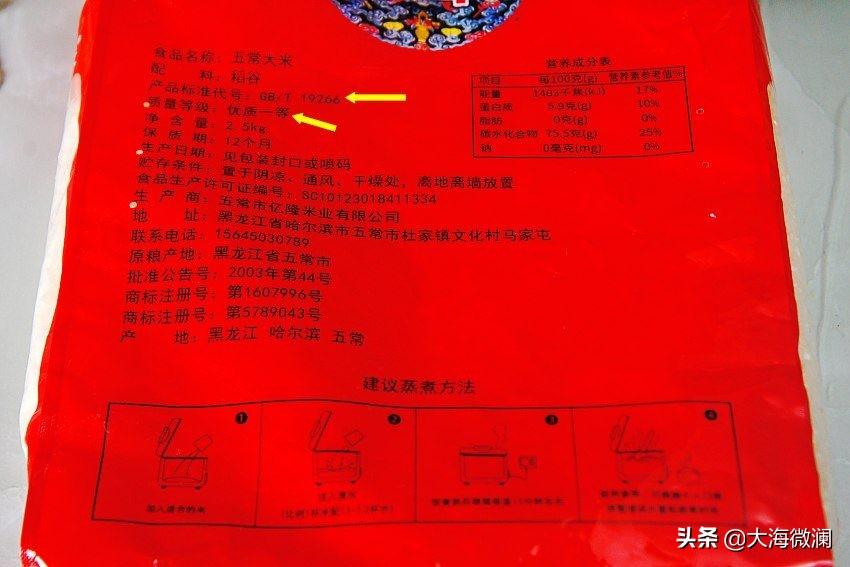 食品名称：五常大米
配 料：稻谷
产品标准代号：GB/T 19266
质量等级：优质一等
净 含 量：2.5kg
保 质 期：12个月
生产日期：见包装封口或喷码
贮存条件：置于阴凉、通风、干燥处，离地离墙放置
食品生产许可证编号：SC10123018411334
生 产 商：五常市亿隆米业有限公司
地 址：黑龙江省哈尔滨市五常市杜家镇文化村马家屯
联系电话：15645030789
原粮产地：黑龙江省五常市
批准公告号：2003年第44号
商标注册号：第1607996号
商标注册号：第5789043号
产 地：黑龙江 哈尔滨 五常
营养成分表
项目 每100克(g) 营养素参考值%
能量 1483千焦(kJ) 17%
蛋白质 5.9克(g) 10%
脂肪 0克(g) 0%
碳水化合物 75.5克(g) 25%
钠 0毫克(mg) 0%
建议蒸煮方法
1 2 3 4
加入适合的米
注入清水
头条 @大海微澜